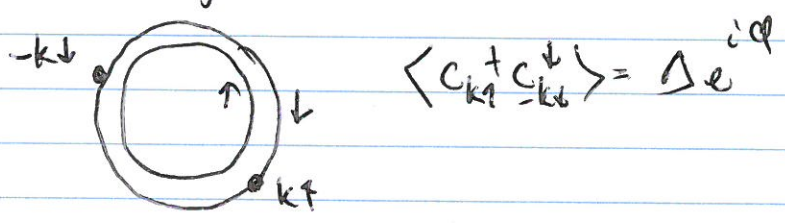 -k↓
⟨c_{k↑}^† c_{-k↓}^↓⟩ = Δ e^{iφ}
↑ ↓
k↑